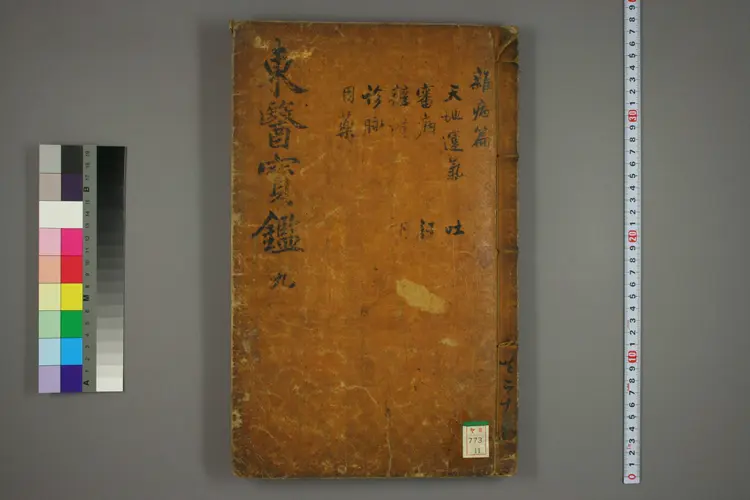 東醫寶鑑 九
雜病篇
天地運氣 吐
審病 汗
辨證 下
診脉
用藥
773
11